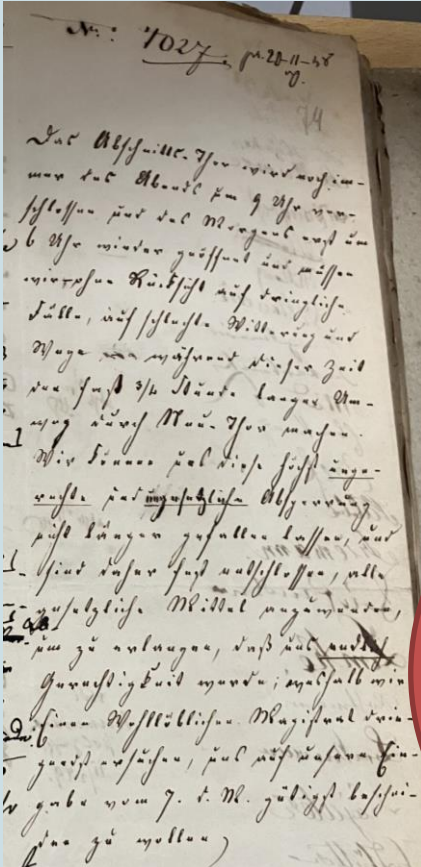 No: 7027. pr. 20-11-48
74
Das Abschnitts-Thor wird noch im-
mer des Abends um 9 Uhr ver-
schlossen und des Morgens erst um
6 Uhr wieder geöffnet und müssen
wir ohne Rücksicht auf dringliche
Fälle, auf schlechte Witterung und
Wege während dieser Zeit
den fast 3/4 Stunde langen Um-
weg durch Neu-Thor machen.
Wir können uns diese höchst unge-
rechte und ungesetzliche Absperrung
nicht länger gefallen lassen, und
sind daher fest entschlossen, alle
gesetzliche Mittel anzuwenden,
um zu erlangen, daß uns endlich
Gerechtigkeit werde; weshalb wir
Einen Wohllöblichen Magistrat drin-
gendst ersuchen, uns auf unsere Ein-
gabe vom 7. d. M. gütigst beschei-
den zu wollen